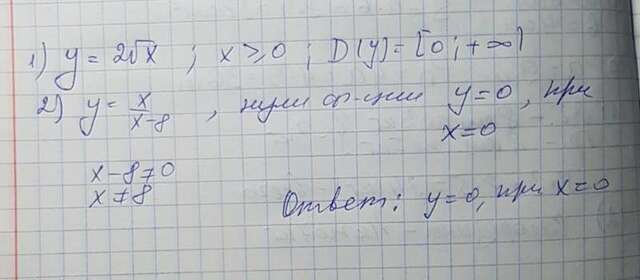 1) y = 2√x ; x ≥ 0 ; D(y) = [0 ; +∞)
2) y = x/(x-8) , нули ф-ции y = 0 , при
x = 0
x - 8 ≠ 0
x ≠ 8
Ответ: y = 0, при x = 0